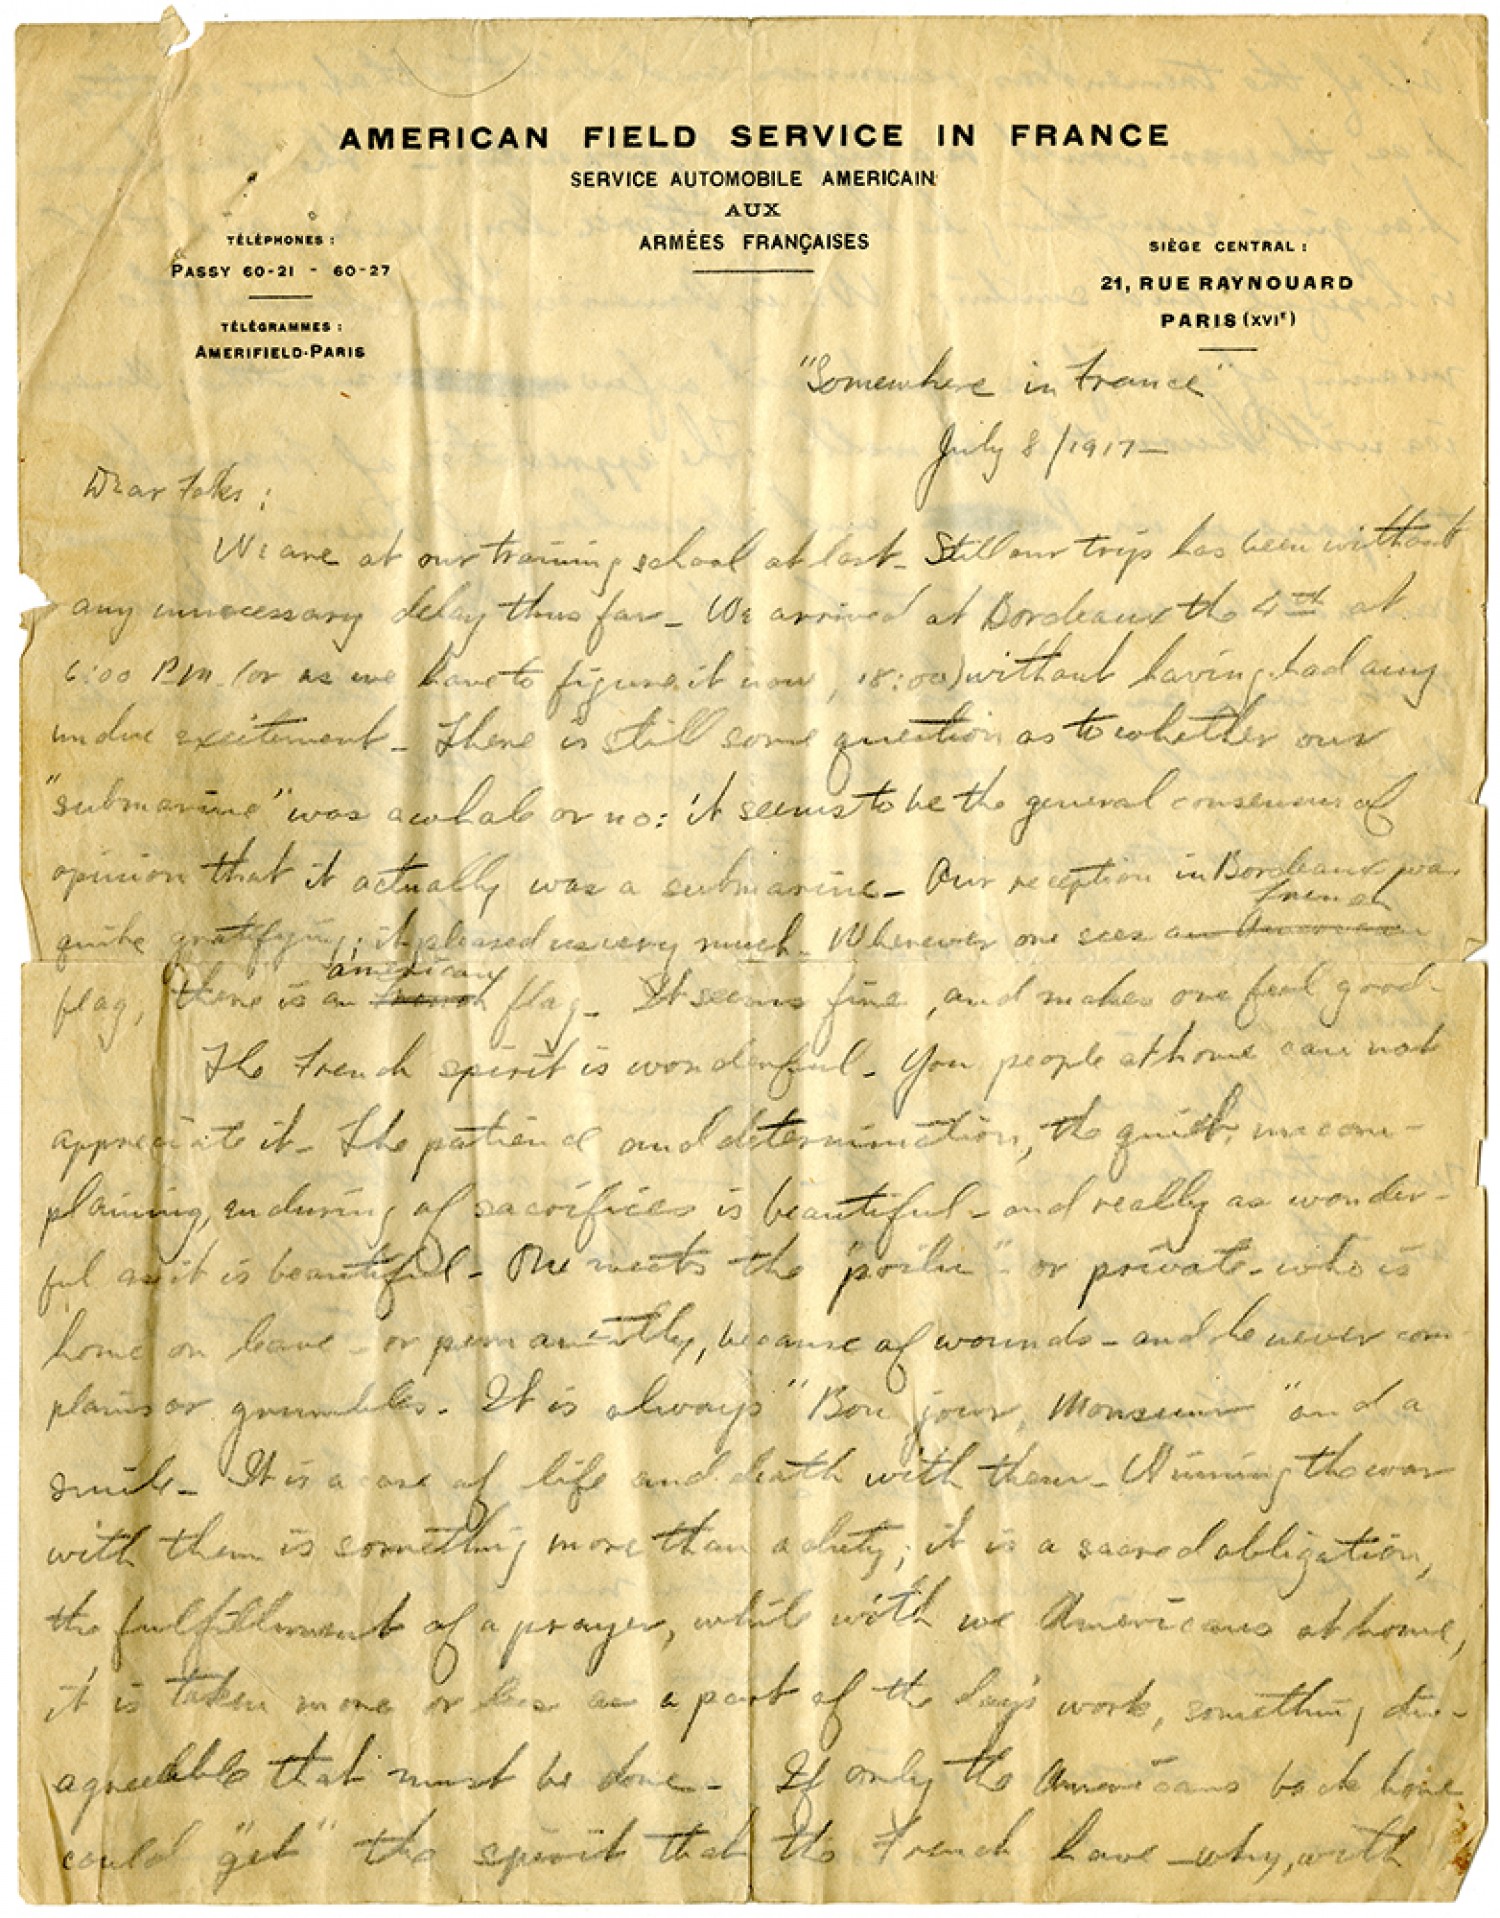 AMERICAN FIELD SERVICE IN FRANCE
SERVICE AUTOMOBILE AMERICAIN
AUX
ARMÉES FRANÇAISES
TÉLÉPHONES :
PASSY 60-21 - 60-27
TÉLÉGRAMMES :
AMERIFIELD-PARIS
SIÈGE CENTRAL :
21, RUE RAYNOUARD
PARIS (XVIe)
"Somewhere in France"
July 8/1917-
Dear Folks:
We are at our training school at last. Still our trip has been without
any unnecessary delay thus far. We arrived at Bordeaux the 4th at
6:00 P.M. (or as we have to figure it now, 18:00) without having had any
undue excitement. There is still some question as to whether our
"submarine" was a whale or no: it seems to be the general consensus of
opinion that it actually was a submarine. Our reception in Bordeaux was
quite gratifying; it pleased us very much. Wherever one sees an American French
flag, there is an French american flag. It seems fine, and makes one feel good.
The French spirit is wonderful. You people at home can not
appreciate it. The patience and determination, the quiet, uncom-
plaining, enduring of sacrifices is beautiful - and really as wonder-
ful as it is beautiful. One meets the "poilu" - or private - who is
home on leave - or permanently, because of wounds - and he never com-
plains or grumbles. It is always "Bon jour, Monsieur" and a
smile. It is a case of life and death with them. Winning the war
with them is something more than a duty; it is a sacred obligation,
the fulfillment of a prayer, while with we Americans at home,
it is taken more or less as a part of the day's work, something dis-
agreeable that must be done. If only the Americans back home
could "get" the spirit that the French have - why, with